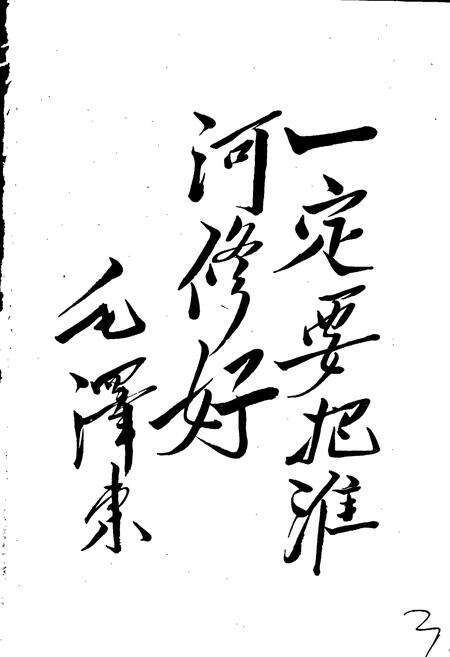 一定要把淮
河修好
毛澤东
3